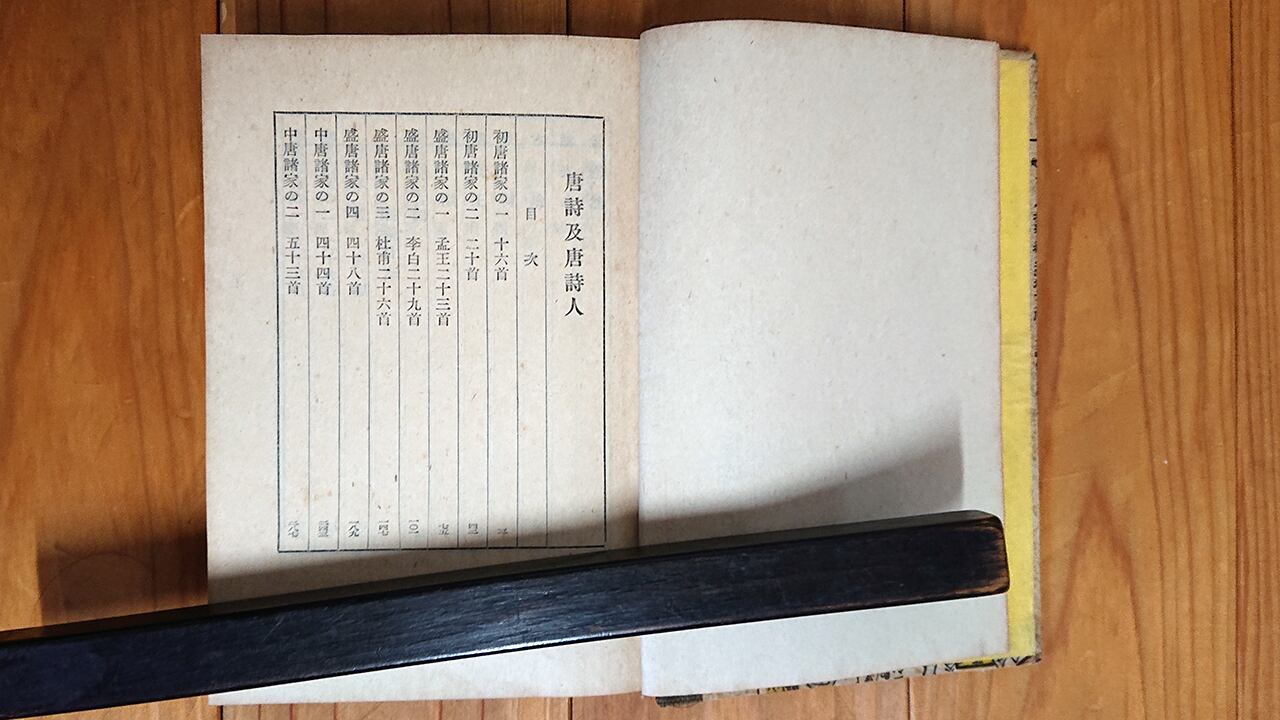 唐詩及唐詩人
目次
初唐諸家の一 十六首
初唐諸家の二 二十首 四三
盛唐諸家の一 孟王二十三首 七五
盛唐諸家の二 李白二十九首 一〇一
盛唐諸家の三 杜甫二十六首 一四七
盛唐諸家の四 四十八首 一八九
中唐諸家の一 四十四首
中唐諸家の二 五十三首